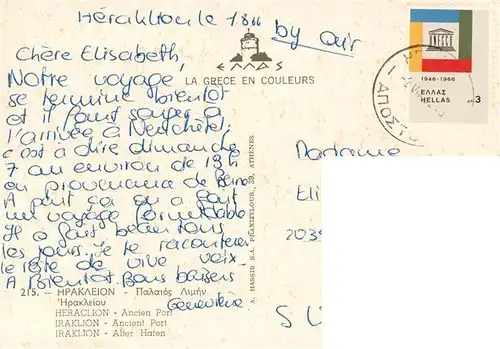 Héraklion le 1.8.66
by air
Chère Elisabeth,
Notre voyage
se termine bientôt
et il faut songer à
l'arrivée à Neuchâtel,
c'est à dire dimanche
7 au environ de 19h
en provenance de Berne
A part ça on a fait
un voyage formidable
Il a fait beau tous
les jours. Je te raconterai
le reste de vive voix.
A Bientôt. Bons baisers
Geneviève
ΕΛΛΑΣ
LA GRECE EN COULEURS
1946-1966
ΕΛΛΑΣ
HELLAS
3
ΑΠΟΣΤ
A. HASSID S.A. PRAXITELOUS, 39, ATHENES
Madame
Eli
203
S U
215. - ΗΡΑΚΛΕΙΟΝ - Παλαιός Λιμήν
Ἡρακλείου
HERACLION - Ancien Port
IRAKLION - Ancient Port
IRAKLION - Alter Hafen